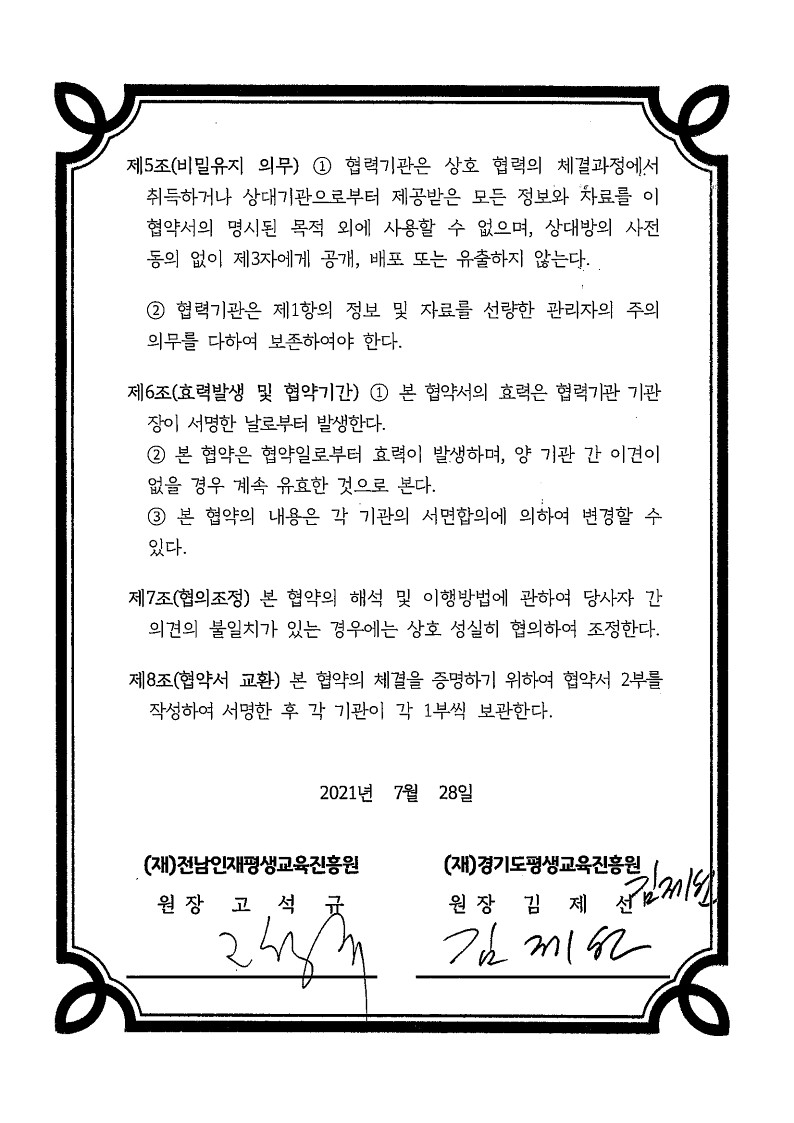 제5조(비밀유지 의무) ① 협력기관은 상호 협력의 체결과정에서
취득하거나 상대기관으로부터 제공받은 모든 정보와 자료를 이
협약서의 명시된 목적 외에 사용할 수 없으며, 상대방의 사전
동의 없이 제3자에게 공개, 배포 또는 유출하지 않는다.
② 협력기관은 제1항의 정보 및 자료를 선량한 관리자의 주의
의무를 다하여 보존하여야 한다.
제6조(효력발생 및 협약기간) ① 본 협약서의 효력은 협력기관 기관
장이 서명한 날로부터 발생한다.
② 본 협약은 협약일로부터 효력이 발생하며, 양 기관 간 이견이
없을 경우 계속 유효한 것으로 본다.
③ 본 협약의 내용은 각 기관의 서면합의에 의하여 변경할 수
있다.
제7조(협의조정) 본 협약의 해석 및 이행방법에 관하여 당사자 간
의견의 불일치가 있는 경우에는 상호 성실히 협의하여 조정한다.
제8조(협약서 교환) 본 협약의 체결을 증명하기 위하여 협약서 2부를
작성하여 서명한 후 각 기관이 각 1부씩 보관한다.
2021년 7월 28일
(재)전남인재평생교육진흥원
원장 고 석 규
(재)경기도평생교육진흥원
원장 김 제 선